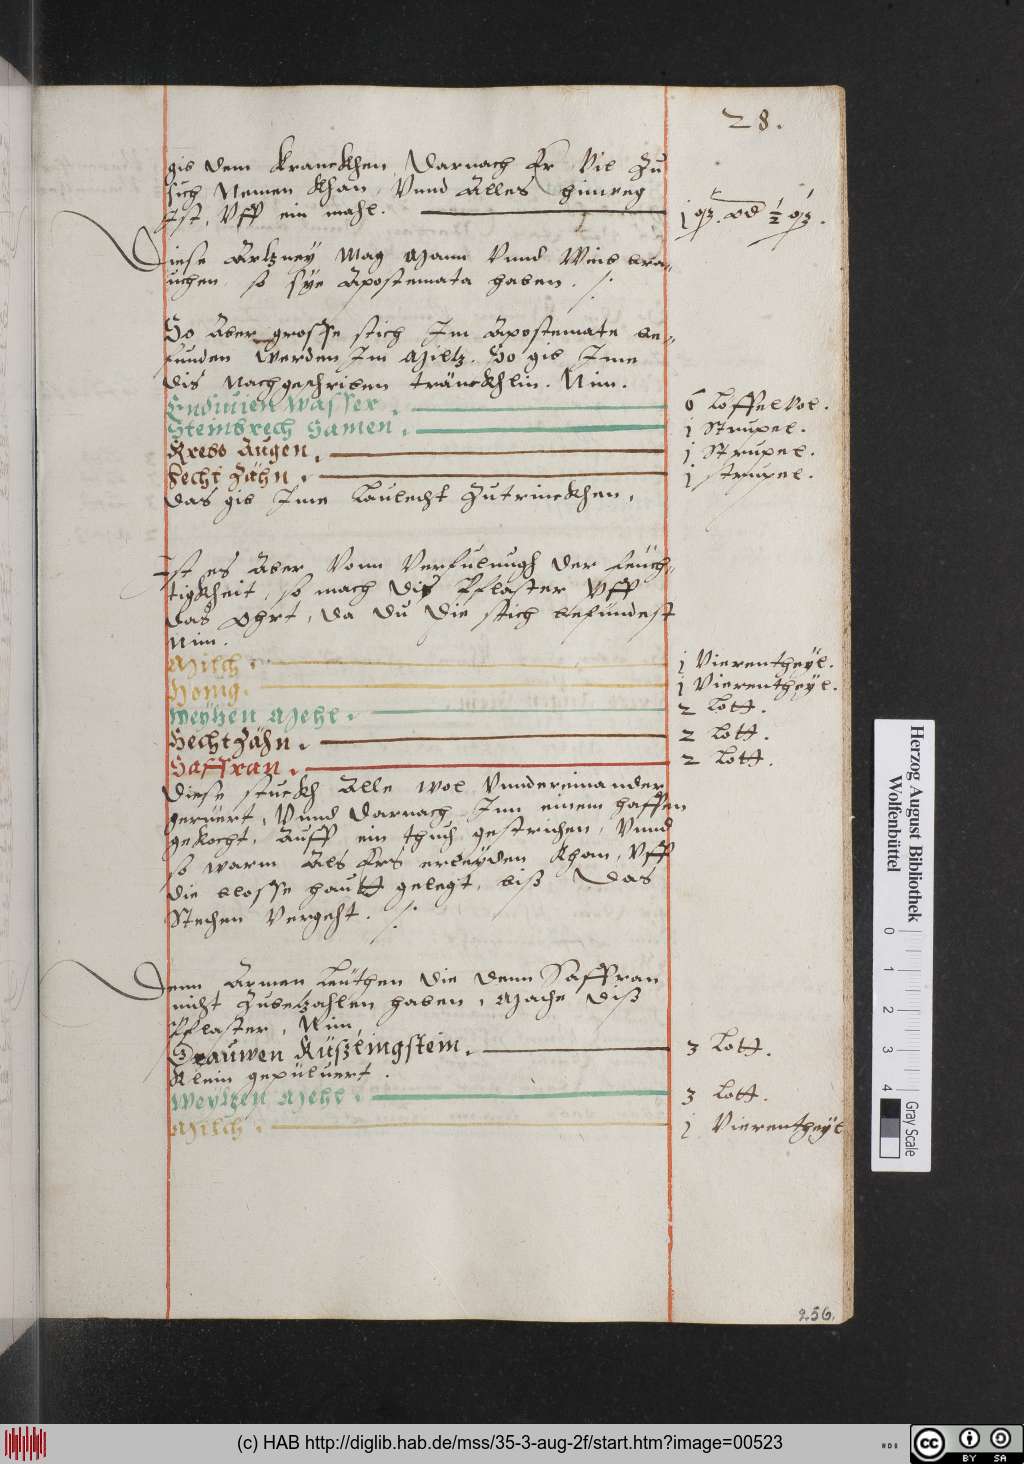 28.
gib dem Kranckhen, Darnach Er Vil Zu
sich Nemen khan, Vnnd Alles hinweg
Ist, Vff ein mahl.
Diese Artzney Mag Mann Vnnd Weib bra-
uchen, so sye Apostemata haben. /.
So Aber grosse stich Im Apostemate be-
funden Werden Im Miltz. So gib Ime
dis Nachgeschriben tränckhlin. Nim.
Endiuien Wasser. 6 Loffel Vol.
Steinbrech Samen. j Strupel.
Krebs Augen. j Strupel.
Hecht Zähn. j strupel.
Das gib Ime Laulecht Zutrinckhen.
Ist es Aber Vonn Verfulnugh der feüch-
tigkheit, so mach dis Pflaster Vff
das Ohrt, da du die stich befundest
Nim.
Milch. j Vierentheyl.
Honig. j Vierentheyl.
Weytzen Mehl. 2 Lott.
Hecht Zähn. 2 Lott.
Saffran. 2 Lott.
Diese stuckh Alle Wol Vndereinander
gerüert, Vnnd Darnach Inn einem haffen
gekocht, Auff ein thuch gestrichen, Vnnd
so warm Als Ers erleyden Khan, Vff
die blosse hautt gelegt, biß Das
Stechen Vergeht. /.
Denn Armen Leüthen die denn Saffran
nicht Zubetzahlen haben, Mache diß
Pflaster, Nim,
Grauwen Küßlingstein. 3 Lott.
Klein gepüluert.
Weytzen Mehl. 3 Lott.
Milch. j Vierentheyl
256.
Herzog August Bibliothek
Wolfenbüttel
0 1 2 3 4
Gray Scale
(c) HAB http://diglib.hab.de/mss/35-3-aug-2f/start.htm?image=00523
cc BY SA